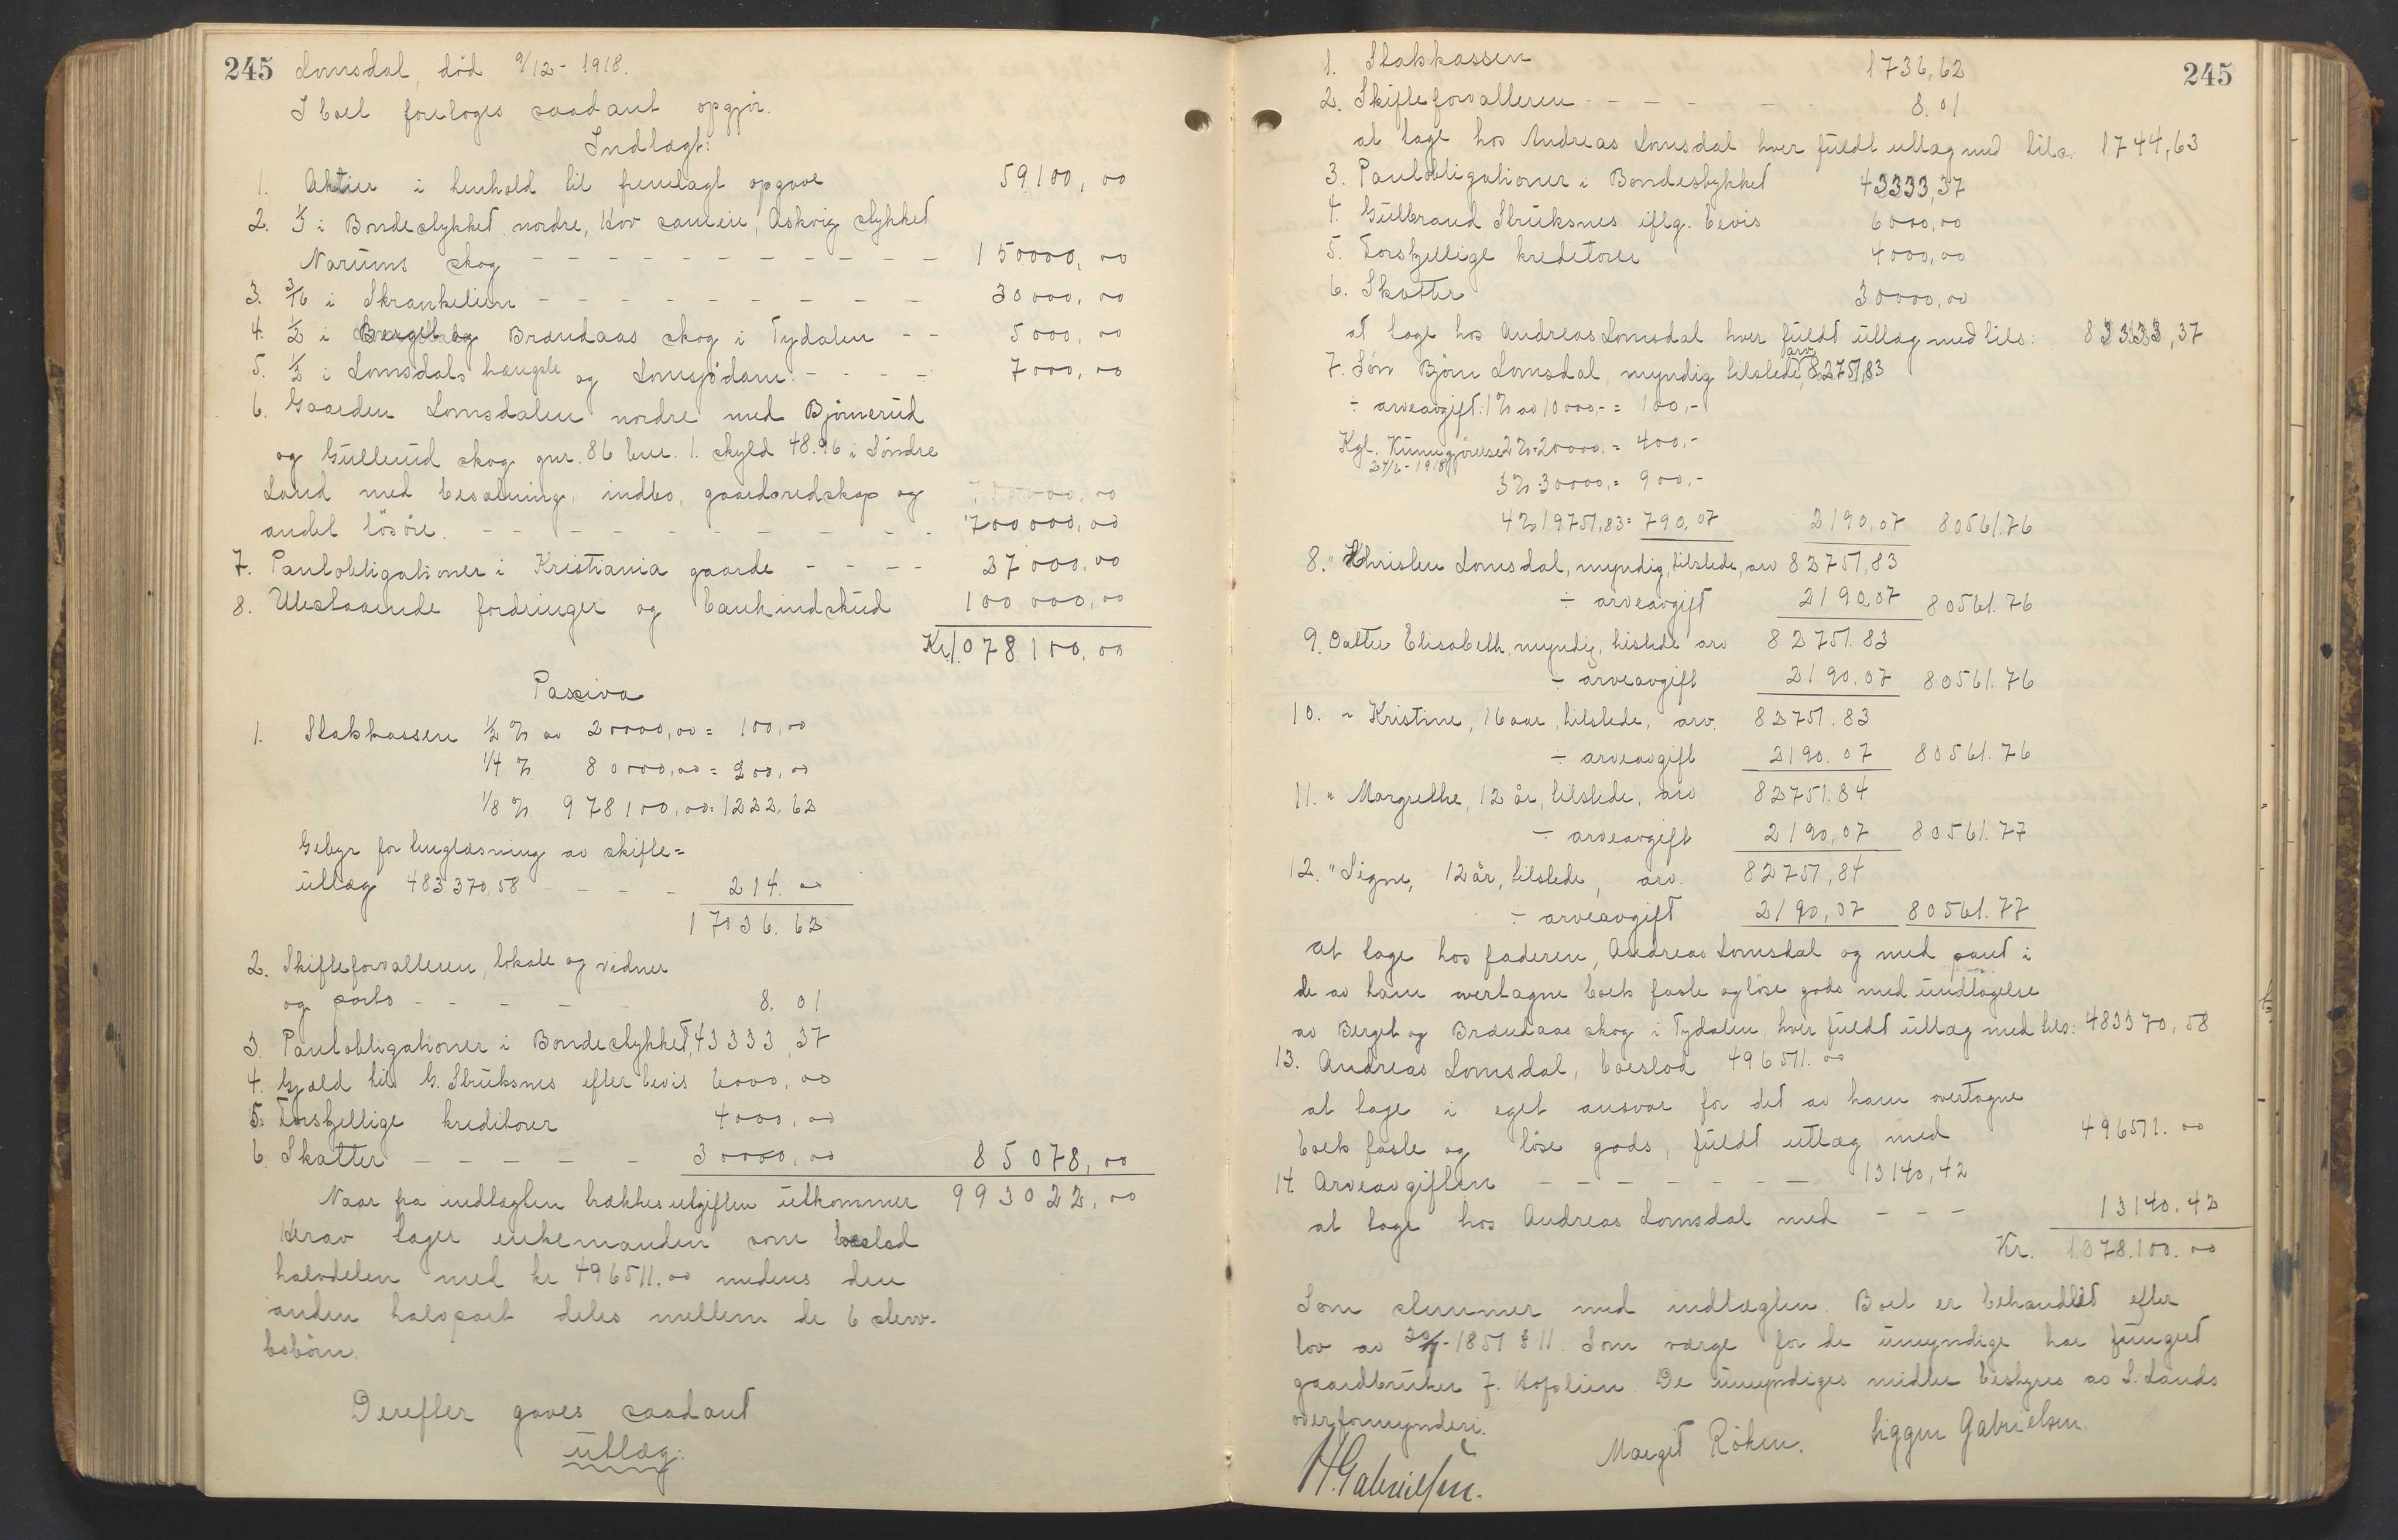 245 Lomsdal, död 9/12-1918.
I boet foretoges saadant opgjör.
Indtægt:
1. Aktier i henhold til fremlagt opgave 59100,00
2. 1/3 i Bondestykket nordre, Hov sameie, Askvig stykket
Narums skog - - - - - - - - - - 150000,00
3. 3/16 i Skrankelien - - - - - - - - - 30000,00
4. 1/2 i Berget og Brændaas skog i Tydalen - - 5000,00
5. 1/2 i Lomsdals hængsle og Lomsjödam: - - - - 7000,00
6. Gaarden Lomsdalen nordre med Björnerud
og Gullerud skog gnr. 86 bnr. 1. skyld 48.96 i Söndre
Land med besætning, indbo, gaardsredskap og
andet lösöre. - - - - - - - - - - - 700000,00
7. Pantobligationer i Kristiania gaarde - - - - 27000,00
8. Utestaaende fordringer og bankindskud 100000,00
Kr. 1.078100,00
Passiva
1. Statskassen 1/2 % av 20000,00 = 100,00
1/4 % 80000,00 = 200,00
1/8 % 978100,00 = 1222,62
Gebyr for tinglæsning av skifte=
utlæg 483.370,58 - - - - 214.00
1736.62
2. Skifteforvalteren, lokale og vidner
og porto - - - - - 8.01
3. Pantobligationer i Bondestykket, 43333,37
4. Gjæld til G. Struksnes efter bevis 6000,00
5. Forskjellige kreditorer 4000,00
6. Skatter - - - - - - 30000,00 85078,00
Naar fra indtægten trækkes utgiften utkommer 993022,00
Herav tager enkemanden som boeslod
halvdelen med kr 496511.00 medens den
anden halvpart deles mellem de 6 sterv-
bobörn.
Derefter gaves saadant
utlæg:
245
1. Statskassen 1736,62
2. Skifteforvalteren - - - - - - - 8.01
at tage hos Andreas Lomsdal hver fuldt utlæg med tils. 1744,63
3. Pantobligationer i Bondestykket 43333,37
4. Gulbrand Struksnes iflg. bevis 6000,00
5. Forskjellige kreditorer 4000,00
6. Skatter 30000,00
at tage hos Andreas Lomsdal hver fuldt utlæg med tils: 83333,37
7. Sön Björn Lomsdal, myndig tilstede, arv 82751,83
÷ arveavgift: 1% av 10000,- = 100,-
Kgl. Kunngjörelse 2% 20000,= 400,-
24/6-1918
3% 30000,= 900,-
4% 19751,83= 790,07 2190,07 80561.76
8. " Christen Lomsdal, myndig, tilstede, arv 82751,83
÷ arveavgift 2190,07 80561.76
9. Datter Elisabeth, myndig, tilstede arv 82751.83
÷ arveavgift 2190,07 80561.76
10. " Kristine, 16 aar, tilstede, arv. 82751.83
÷ arveavgift 2190.07 80561.76
11. " Margrethe, 12 år, tilstede, arv 82751.84
÷ arveavgift 2190,07 80561.77
12. " Signe, 12 år, tilstede, arv. 82751,84
÷ arveavgift 2190,07 80561.77
at tage hos faderen, Andreas Lomsdal og med pant i
de av ham overtagne boets faste og löse gods med undtagelse
av Berget og Brændaas skog i Tydalen, hver fuldt utlæg med tils: 483370,58
13. Andreas Lomsdal, boeslod 496511.00
at tage i eget ansvar for det av ham overtagne
boets faste og löse gods, fuldt utlæg med 496511.00
14. Arveavgiften - - - - - - - 13140,42
at tage hos Andreas Lomsdal med - - - 13140.42
Kr. 1.078.100.00
Som stemmer med indtægten. Boet er behandlet efter
lov av 30/7-1851 § 11. Som værge for de umyndige har fungert
gaardbruker J. Hofslien. De umyndiges midler bestyres av S. Lands
overformynderi.
H. Gabrielsen. Margit Röken. Siggen Gabrielsen.